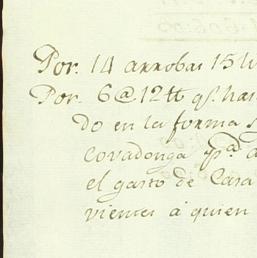 Por. 14 arrobas 15 li
Por. 6@12 tt qs. has
do en la forma s
Covadonga pa. a
el gasto de Casa
vientes a quien